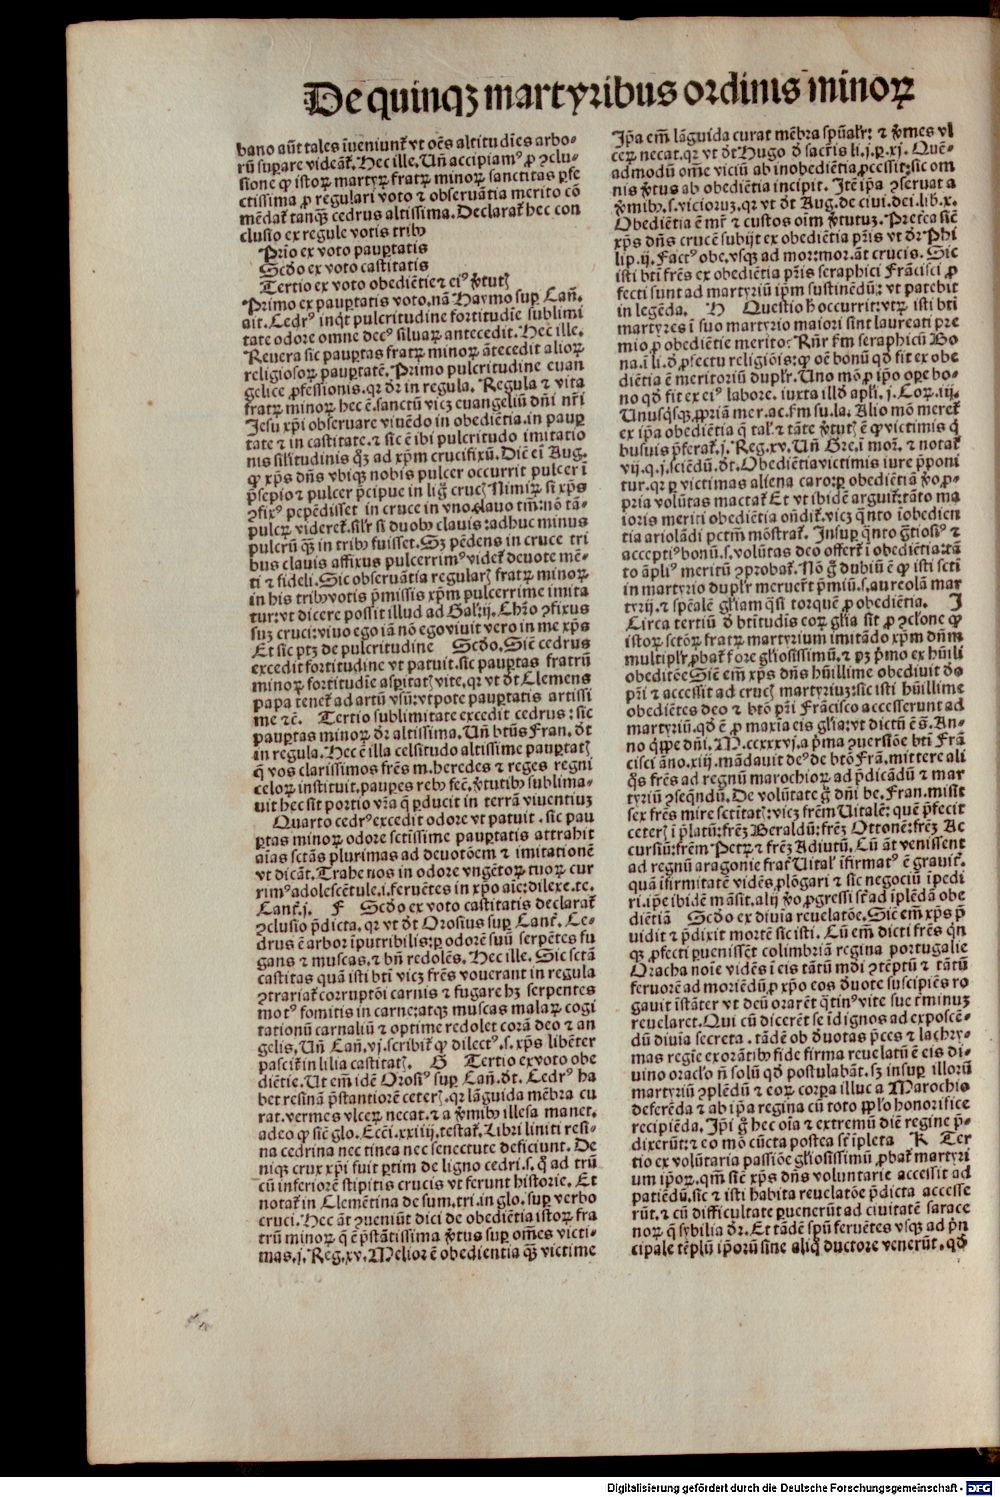 De quinqꝫ martyribus ordinis minoꝝ
bano aūt tales īueniunt᷑ vt oēs altitudīes arbo-
rū suꝑare videāt᷑. Hec ille. Uñ accipiamꝰ ꝓ ꝯclu-
sione ꝙ istoꝝ martyꝝ fratꝝ minoꝝ sanctitas ꝑfe
ctissima ꝓ regulari voto ⁊ obseruātia merito cō
mēdat᷑ tanqꝫ cedrus altissima. Declarat᷑ hec con
clusio ex regule votis tribꝰ
Prīo ex voto pauꝑtatis
Scđo ex voto castitatis
Tertio ex voto obediētie ⁊ eiꝰ v̄tutꝭ
Primo ex pauꝑtatis voto, nā Haymo suꝑ Cañ.
ait. Cedrꝰ inqͥt pulcritudine fortitudīe sublimi
tate odore omne decꝰ siluaꝝ antecedit. Hec ille.
Reuera sic pauꝑtas fratꝝ minoꝝ ātecedit alioꝝ
religiosoꝝ pauꝑtatē. Primo pulcritudine euan
gelice ꝓfessionis. qꝛ dr̄ in regula. Regula ⁊ vita
fratꝝ minoꝝ hec ē. sanctū vicꝫ euangeliū dn̄i nr̄i
Jesu xp̄i obseruare viuēdo in obediētia. in pauꝑ
tate ⁊ in castitate. ⁊ sic ē ibi pulcritudo imitatio
nis silitudinis qͣꝫ ad xp̄m crucifixū. Diē eī Aug.
ꝙ xp̄s dn̄s vbiqꝫ nobis pulcer occurrit pulcer ī
p̄sepio ⁊ pulcer p̄cipue in lig͂ crucꝭ Nimiꝝ si xp̄s
ꝯfixꝰ pepēdisset in cruce in vno clauo tm̄: nō tā-
pulcꝝ videret᷑. silr̄ si duobꝰ clauis: adhuc minus
pulcrū qꝫ in tribꝰ fuisset. Sꝫ pēdens in cruce tri
bus clauis affixus pulcerrimꝰ videt᷑ deuote mē-
ti ⁊ fideli. Sic obseruātia regularꝭ fratꝝ minoꝝ
in his tribꝰ votis p̄missis xp̄m pulcerrime imita
tur: vt dicere possit illud ad Gal. ij. Chr̄o ꝯfixus
suꝫ cruci: viuo ego iā nō ego viuit vero in me xp̄s
Et sic ptꝫ de pulcritudine Scđo. Sicē cedrus
excedit fortitudine vt patuit. sic pauꝑtas fratrū
minoꝝ fortitudīe asꝑitatꝭ vite. qꝛ vt dt̄ Clemens
papa tenet᷑ ad artū vsū: vtpote pauꝑtatis artissi
me ⁊ē. Tertio sublimitate excedit cedrus: sic
pauꝑtas minoꝝ dr̄ altissima. Uñ btūs Fran. dt̄
in regula. Hec ē illa celsitudo altissime pauꝑtatꝭ
q̄ vos clarissimos frēs m. heredes ⁊ reges regni
celoꝝ instituit. pauꝑes rebꝰ fec̄. v̄tutibꝰ sublima-
uit hec sit portio vr̄a q̄ ꝑducit in terrā viuentiuꝫ
Quarto cedrꝰ excedit odore vt patuit. sic pau
ꝑtas minoꝝ odore sctīssime pauꝑtatis attrahit
aīas sctās plurimas ad deuotōem ⁊ imitationē
vt dicāt. Trahe nos in odore vngētoꝝ tuoꝝ cur
rimꝰ adolescētule. i. feruētes in xp̄o aīe: dilexe. te.
Cant. j. F Scđo ex voto castitatis declarat᷑
ꝯclusio p̄dicta. qꝛ vt dt̄ Orosius suꝑ Cant. Ce-
drus ē arbor īputribilis: ꝑ odorē suū serpētes fu
gans ⁊ muscas. ⁊ bñ redolēs. Hec ille. Sic sctā
castitas quā isti bti vicꝫ frēs vouerant in regula
ꝯtrariat᷑ corruptōi carnis ⁊ fugare hꝫ serpentes
motꝰ fomitis in carne: atqꝫ muscas malaꝝ cogi
tationū carnaliū ⁊ optime redolet corā deo ⁊ an
gelis. Uñ Cañ. vj. scribit᷑ ꝙ dilectꝰ. s. xp̄s libēter
pascit᷑ in lilia castitatꝭ. G Tertio ex voto obe
diētie. Ut em̄ idē Orosiꝰ suꝑ Cañ. dt̄. Cedrꝰ ha
bet resinā p̄stantiorē ceterꝭ. qꝛ lāguida mēbra cu
rat. vermes vlceꝝ necat. ⁊ a v̄mibꝰ illesa manet.
adeo ꝙ sicē glo. Eccī. xxiiij. testat᷑. Libri liniti resi-
na cedrina nec tinea nec senectute deficiunt. De
niqꝫ crux xp̄i fuit ꝑtim de ligno cedri. s. q̄ ad trū
cū inferiorē stipitis crucis vt ferunt historie. Et
notat᷑ in Clemētina de sum. tri. in glo. suꝑ verbo
cruci. Hec āt ꝯueniūt dici de obediētia istoꝝ fra
trū minoꝝ q̄ ē p̄stātissima v̄tus suꝑ oēs victi-
mas. j. Reg. xv. Melior ē obedientia qꝫ victime
Ip̄a em̄ lāguida curat mēbra spūalr̄: ⁊ v̄mes vl
ceꝝ necat. qꝛ vt dt̄ Hugo d̄ sacr̄is li. j. ꝑ. xj. Quē-
admodū oē viciū ab inobediētia ꝓcessit: sic om
nis v̄tus ab obediētia incipit. Itē ip̄a ꝯseruat a
v̄mibꝰ. s. vicioruꝫ. qꝛ vt dt̄ Aug. de ciui. dei. lib. x.
Obediētia ē mr̄ ⁊ custos oīm v̄tutuꝫ. Pretea sicē
xp̄s dn̄s crucē subijt ex obediētia pr̄is vt dr̄ Phi
lip. ij. Factꝰ obe. vsqꝫ ad mor: mor. āt crucis. Sic
isti bti frēs ex obediētia pr̄is seraphici Frācisci ꝓ
fecti sunt ad martyriū ip̄m sustinēdū: vt patebit
in legēda. H Questio h̄ occurrit: vtꝝ isti bti
martyres ī suo martyrio maiori sint laureati pre
mio ꝓ obediētie merito: Rn̄r fm̄ seraphicū Bo
na. ī li. d̄ ꝓfectu religiōis: ꝙ oē bonū qđ fit ex obe
diētia ē meritoriū duplr̄. Uno mō ꝓ ip̄o oꝑe bo-
no qđ fit ex eiꝰ labore. iuxta illđ apl̄i. j. Cor. iij.
Unusqͥsqꝫ ꝓpriā mer. ac. fm̄ su. la. Alio mō meret᷑
ex ip̄a obediētia q̄ tal᷑ ⁊ tāte v̄tutꝭ ē ꝙ victimis q̄
busuis p̄ferat᷑. j. Reg. xv. Uñ Gre. ī mor. ⁊ notat᷑
vij. q. j. sciēdū. dt̄. Obediētia victimis iure p̄poni
tur. qꝛ ꝑ victimas aliena caro: ꝑ obediētiā v̄o ꝓ-
pria volūtas mactat᷑ Et vt ibidē arguit᷑: tāto ma
ioris meriti obediētia oñdit᷑. vicꝫ qͣnto īobedien
tia ariolādi pctm̄ mōstrat᷑. Insuꝑ qͣnto g̃tiosiꝰ ⁊
acceptiꝰ bonū. s. volūtas deo offert᷑ ī obediētia: tā
to āpliꝰ meritū ꝯprobat᷑. Nō g̃ dubiū ē ꝙ isti sctī
in martyrio duplr̄ meruer̄t p̄miū. s. aureolā mar
tyrij. ⁊ spēalē gl̄iam qͣsi torquē ꝓ obediētia. I
Circa tertiū d̄ btītudīs eoꝝ gl̄ia sit ꝓ ꝯclōne ꝙ
istoꝝ sctōꝝ fratꝝ martyrium imitādo xp̄m dn̄m
multiplr̄ ꝓbat᷑ fore gl̄iosissimū. ⁊ pꝫ p̄mo ex hūili
obediētē Sicē em̄ xp̄s dn̄s hūillime obediuit dō
pr̄i ⁊ accessit ad crucꝭ martyriuꝫ: sic isti hūillime
obediētes deo ⁊ btō pr̄i Frācisco accesserunt ad
martyriū. qđ ē ꝓ maxīa eis gl̄ia: vt dictū ē s̄. An-
no qͥppe dn̄i. M. ccxxvj. a p̄ma ꝯuersiōe btī Frā
cisci āno. xiij. mādauit deꝰ de btō Frā. mittere ali
qͦs frēs ad regnū marochioꝝ ad p̄dicādū ⁊ mar
tyriū ꝯseqndū. De volūtate g̃ dn̄i be. Fran. misit
sex frēs mire sctitatꝭ: vicꝫ frēm Uitalē: quē p̄fecit
ceterꝭ ī p̄latū: frēꝫ Beraldū: frēꝫ Ottonē: frēꝫ Ac
cursiū: frēm Petꝝ ⁊ frēꝫ Adiutū. Cū āt venissent
ad regnū aragonie frat᷑ Uital᷑ īfirmatꝰ ē grauit᷑.
quā īfirmitatē vidēs ꝓlōgari ⁊ sic negociū īpedi
ri. ip̄e ibidē māsit. alij v̄o ꝓgressi st̄ ad īplēdā obe
diētiā Scđo ex diuīa reuelatōe. Sicē em̄ xp̄s p̄
uidit ⁊ p̄dixit mortē sic isti. Cū em̄ dicti frēs qn̄
qꝫ ꝓfecti ꝑuenissēt colimbriā regina portugalie
Oracha noīe vidēs ī eis tātū mdi ꝯtēptū ⁊ tātū
feruorē ad moriēdū ꝓ xp̄o eos d̄uote suscipiēs ro
gauit īstāter vt deū orarēt qͣtinꝰ vite sue t᷑minuꝫ
reuelaret. Qui cū dicerēt se īdignos ad exposcē-
dū diuīa secreta. tādē ob d̄uotas p̄ces ⁊ lachry-
mas regie exorātibꝰ fide firma reuelatū ē eis di-
uino oraclo n̄ solū qđ postulabāt. sꝫ insuꝑ illorū
martyriū ꝯplēdū ⁊ eoꝝ corꝑa illuc a Marochio
deferēda ⁊ ab ip̄a regina cū toto pplo honorifice
recipiēda. Ip̄i g̃ hec oīa ⁊ extremū diē regine p̄-
dixerūt: ⁊ eo mō cūcta postea st̄ īpleta K Ter
tio ex volūtaria passiōe gl̄iosissimū ꝓbat᷑ martyri
um ip̄oꝝ. qm̄ sicē xp̄s dn̄s voluntarie accessit ad
patiēdū. sic ⁊ isti habita reuelatōe p̄dicta accesse
rūt. ⁊ cū difficultate ꝑuenerūt ad ciuitatē sarace
noꝝ q̄ sybilia dr̄. Et tādē spū feruētes vsqꝫ ad p̄n
cipale tēplū ip̄orū sine aliq̄ ductore venerūt. qđ
Digitalisierung gefördert durch die Deutsche Forschungsgemeinschaft - DFG